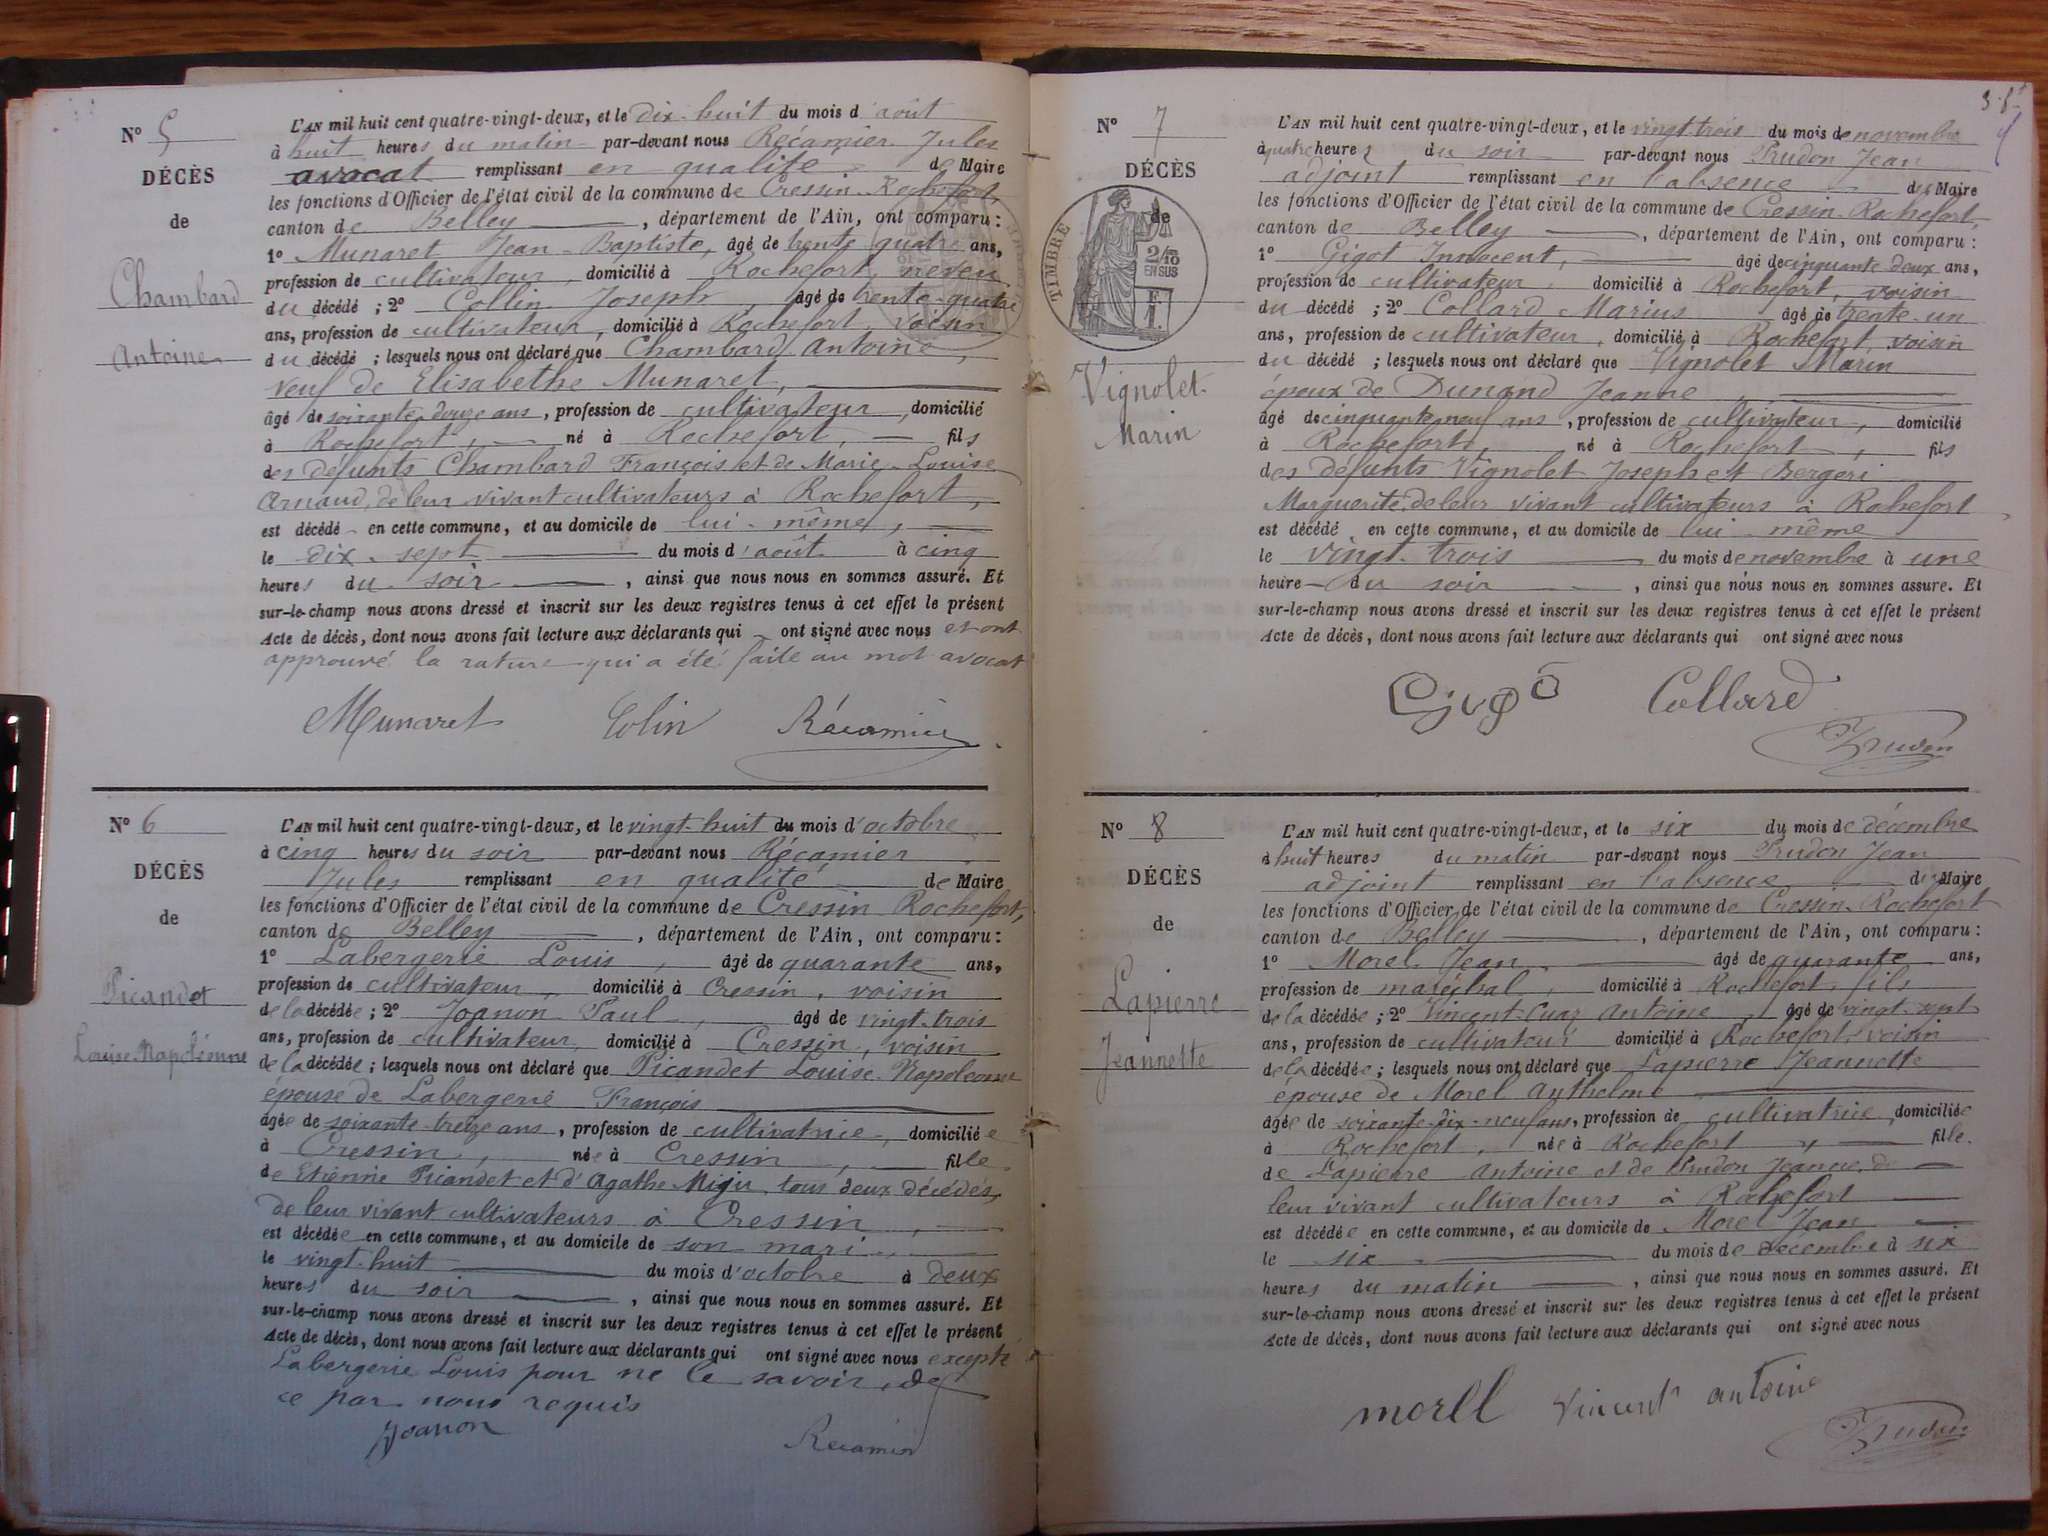 N° 5
DÉCÈS
de
Chambard
Antoine
L'AN mil huit cent quatre-vingt-deux, et le dix-huit du mois d'août
à huit heures du matin par-devant nous Récamier Jules
avocat remplissant en qualité de Maire
les fonctions d'Officier de l'état civil de la commune de Cressin-Rochefort,
canton de Belley, département de l'Ain, ont comparu :
1° Munaret Jean-Baptiste, âgé de trente quatre ans,
profession de cultivateur, domicilié à Rochefort, neveu
du décédé ; 2° Collin Joseph, âgé de trente-quatre
ans, profession de cultivateur, domicilié à Rochefort, voisin
du décédé ; lesquels nous ont déclaré que Chambard Antoine,
veuf de Elisabethe Munaret,
âgé de soixante-douze ans, profession de cultivateur, domicilié
à Rochefort, né à Rochefort, fils
des défunts Chambard François et de Marie-Louise
Arnaud, de leur vivant cultivateurs à Rochefort,
est décédé en cette commune, et au domicile de lui-même,
le dix-sept du mois d'août à cinq
heures du soir, ainsi que nous nous en sommes assuré. Et
sur-le-champ nous avons dressé et inscrit sur les deux registres tenus à cet effet le présent
Acte de décès, dont nous avons fait lecture aux déclarants qui ont signé avec nous et ont
approuvé la rature qui a été faite au mot avocat
Munaret Colin Récamier
N° 6
DÉCÈS
de
Picandet
Louise Napoléonne
L'AN mil huit cent quatre-vingt-deux, et le vingt-huit du mois d'octobre
à cinq heures du soir par-devant nous Récamier
Jules remplissant en qualité de Maire
les fonctions d'Officier de l'état civil de la commune de Cressin-Rochefort,
canton de Belley, département de l'Ain, ont comparu :
1° Labergerie Louis, âgé de quarante ans,
profession de cultivateur, domicilié à Cressin, voisin
de la décédée ; 2° Joanon Paul, âgé de vingt-trois
ans, profession de cultivateur, domicilié à Cressin, voisin
de la décédée ; lesquels nous ont déclaré que Picandet Louise-Napoléonne
épouse de Labergerie François
âgée de soixante-treize ans, profession de cultivatrice, domiciliée
à Cressin, née à Cressin, fille
de Etienne Picandet et d'Agathe tous deux décédés,
de leur vivant cultivateurs à Cressin,
est décédée en cette commune, et au domicile de son mari,
le vingt-huit du mois d'octobre à deux
heures du soir, ainsi que nous nous en sommes assuré. Et
sur-le-champ nous avons dressé et inscrit sur les deux registres tenus à cet effet le présent
Acte de décès, dont nous avons fait lecture aux déclarants qui ont signé avec nous excepté
Labergerie Louis pour ne le savoir, de
ce par nous requis
Joanon Récamier
N° 7
DÉCÈS
de
TIMBRE
2/10
EN SUS
Vignolet
Marin
L'AN mil huit cent quatre-vingt-deux, et le vingt-trois du mois de novembre
à quatre heures du soir par-devant nous Prudon Jean
adjoint remplissant en l'absence du Maire
les fonctions d'Officier de l'état civil de la commune de Cressin-Rochefort,
canton de Belley, département de l'Ain, ont comparu :
1° Gigot Innocent, âgé de cinquante deux ans,
profession de cultivateur, domicilié à Rochefort, voisin
du décédé ; 2° Collard Marius âgé de trente-un
ans, profession de cultivateur, domicilié à Rochefort voisin
du décédé ; lesquels nous ont déclaré que Vignolet Marin
époux de Dunand Jeanne
âgé de cinquante neuf ans, profession de cultivateur, domicilié
à Rochefort, né à Rochefort, fils
des défunts Vignolet Joseph et Bergeri
Marguerite, de leur vivant cultivateurs à Rochefort
est décédé en cette commune, et au domicile de lui-même
le vingt-trois du mois de novembre à une
heure du soir, ainsi que nous nous en sommes assuré. Et
sur-le-champ nous avons dressé et inscrit sur les deux registres tenus à cet effet le présent
Acte de décès, dont nous avons fait lecture aux déclarants qui ont signé avec nous
Collard
Prudon
N° 8
DÉCÈS
de
Lapierre
Jeannette
L'AN mil huit cent quatre-vingt-deux, et le six du mois de décembre
à huit heures du matin par-devant nous Prudon Jean
adjoint remplissant en l'absence du Maire
les fonctions d'Officier de l'état civil de la commune de Cressin-Rochefort
canton de Belley, département de l'Ain, ont comparu :
1° Morel Jean, âgé de quarante ans,
profession de maréchal, domicilié à Rochefort, fils
de la décédée ; 2° Vincent-Cuaz Antoine, âgé de vingt-sept
ans, profession de cultivateur domicilié à Rochefort, voisin
de la décédée ; lesquels nous ont déclaré que Lapierre Jeannette
épouse de Morel Anthelme
âgée de soixante-dix-neuf ans, profession de cultivatrice, domiciliée
à Rochefort, née à Rochefort, fille
de Lapierre Antoine et de Prudon Jeanne, de
leur vivant cultivateurs à Rochefort
est décédée en cette commune, et au domicile de Morel Jean
le six du mois de décembre à six
heures du matin, ainsi que nous nous en sommes assuré. Et
sur-le-champ nous avons dressé et inscrit sur les deux registres tenus à cet effet le présent
Acte de décès, dont nous avons fait lecture aux déclarants qui ont signé avec nous
morel vincent antoine
Prudon